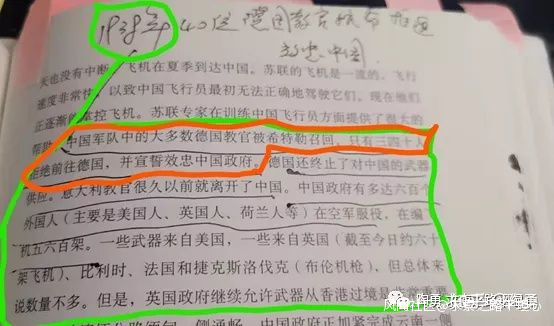 1938年 40位德国教官抗命拒返
效忠中国
天也没有中断。飞机在夏季到达中国。苏联的飞机是一流的，飞行
速度非常快，以致中国飞行员最初无法正确地驾驶它们。现在他们
正逐渐的掌控飞机。苏联专家在训练中国飞行员方面提供了很大的
帮助。中国军队中的大多数德国教官被希特勒召回，只有三四十人
拒绝前往德国，并宣誓效忠中国政府。德国还终止了对中国的武器
供应。意大利教官很久以前就离开了中国。中国政府有多达六百个
外国人（主要是美国人、英国人、荷兰人等）在空军服役，在编
机五六百架。一些武器来自美国，一些来自英国（截至今日约六十
架飞机）、比利时、法国和捷克斯洛伐克（布伦机枪），但总体来
说数量不多。但是，英国政府继续允许武器从香港过境是非常重要